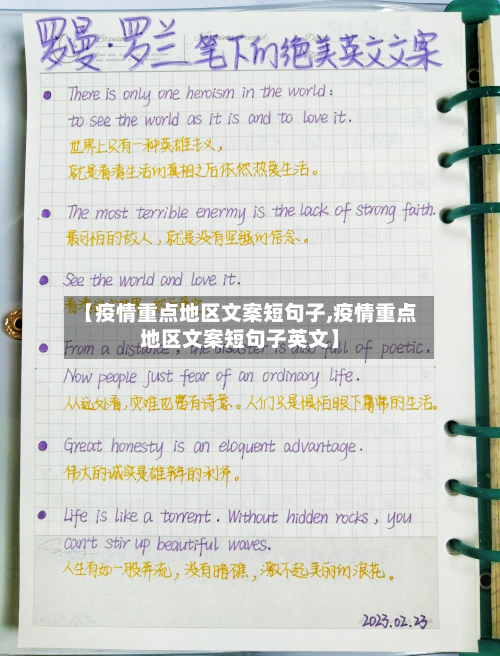 罗曼·罗兰笔下的绝美英文文案
There is only one heroism in the world:
to see the world as it is and to love it.
世界上只有一种英雄主义，
就是看清生活的真相之后依然热爱生活。
The most terrible enermy is the lack of strong faith.
最可怕的敌人，就是没有坚强的信念。
See the world and love it.
【疫情重点地区文案短句子,疫情重点
地区文案短句子英文】
From a distance, the disaster is also full of poetic.
Now people just fear of an ordinary life.
从远处看，灾难也富有诗意。人们只是惧怕眼下庸常的生活。
Great honesty is an eloquent advantage.
伟大的诚实是雄辩的利斧。
Life is like a torrent. Without hidden rocks, you
can't stir up beautiful waves.
人生有如一股奔流，没有暗礁，激不起美丽的浪花。
2023.02.23